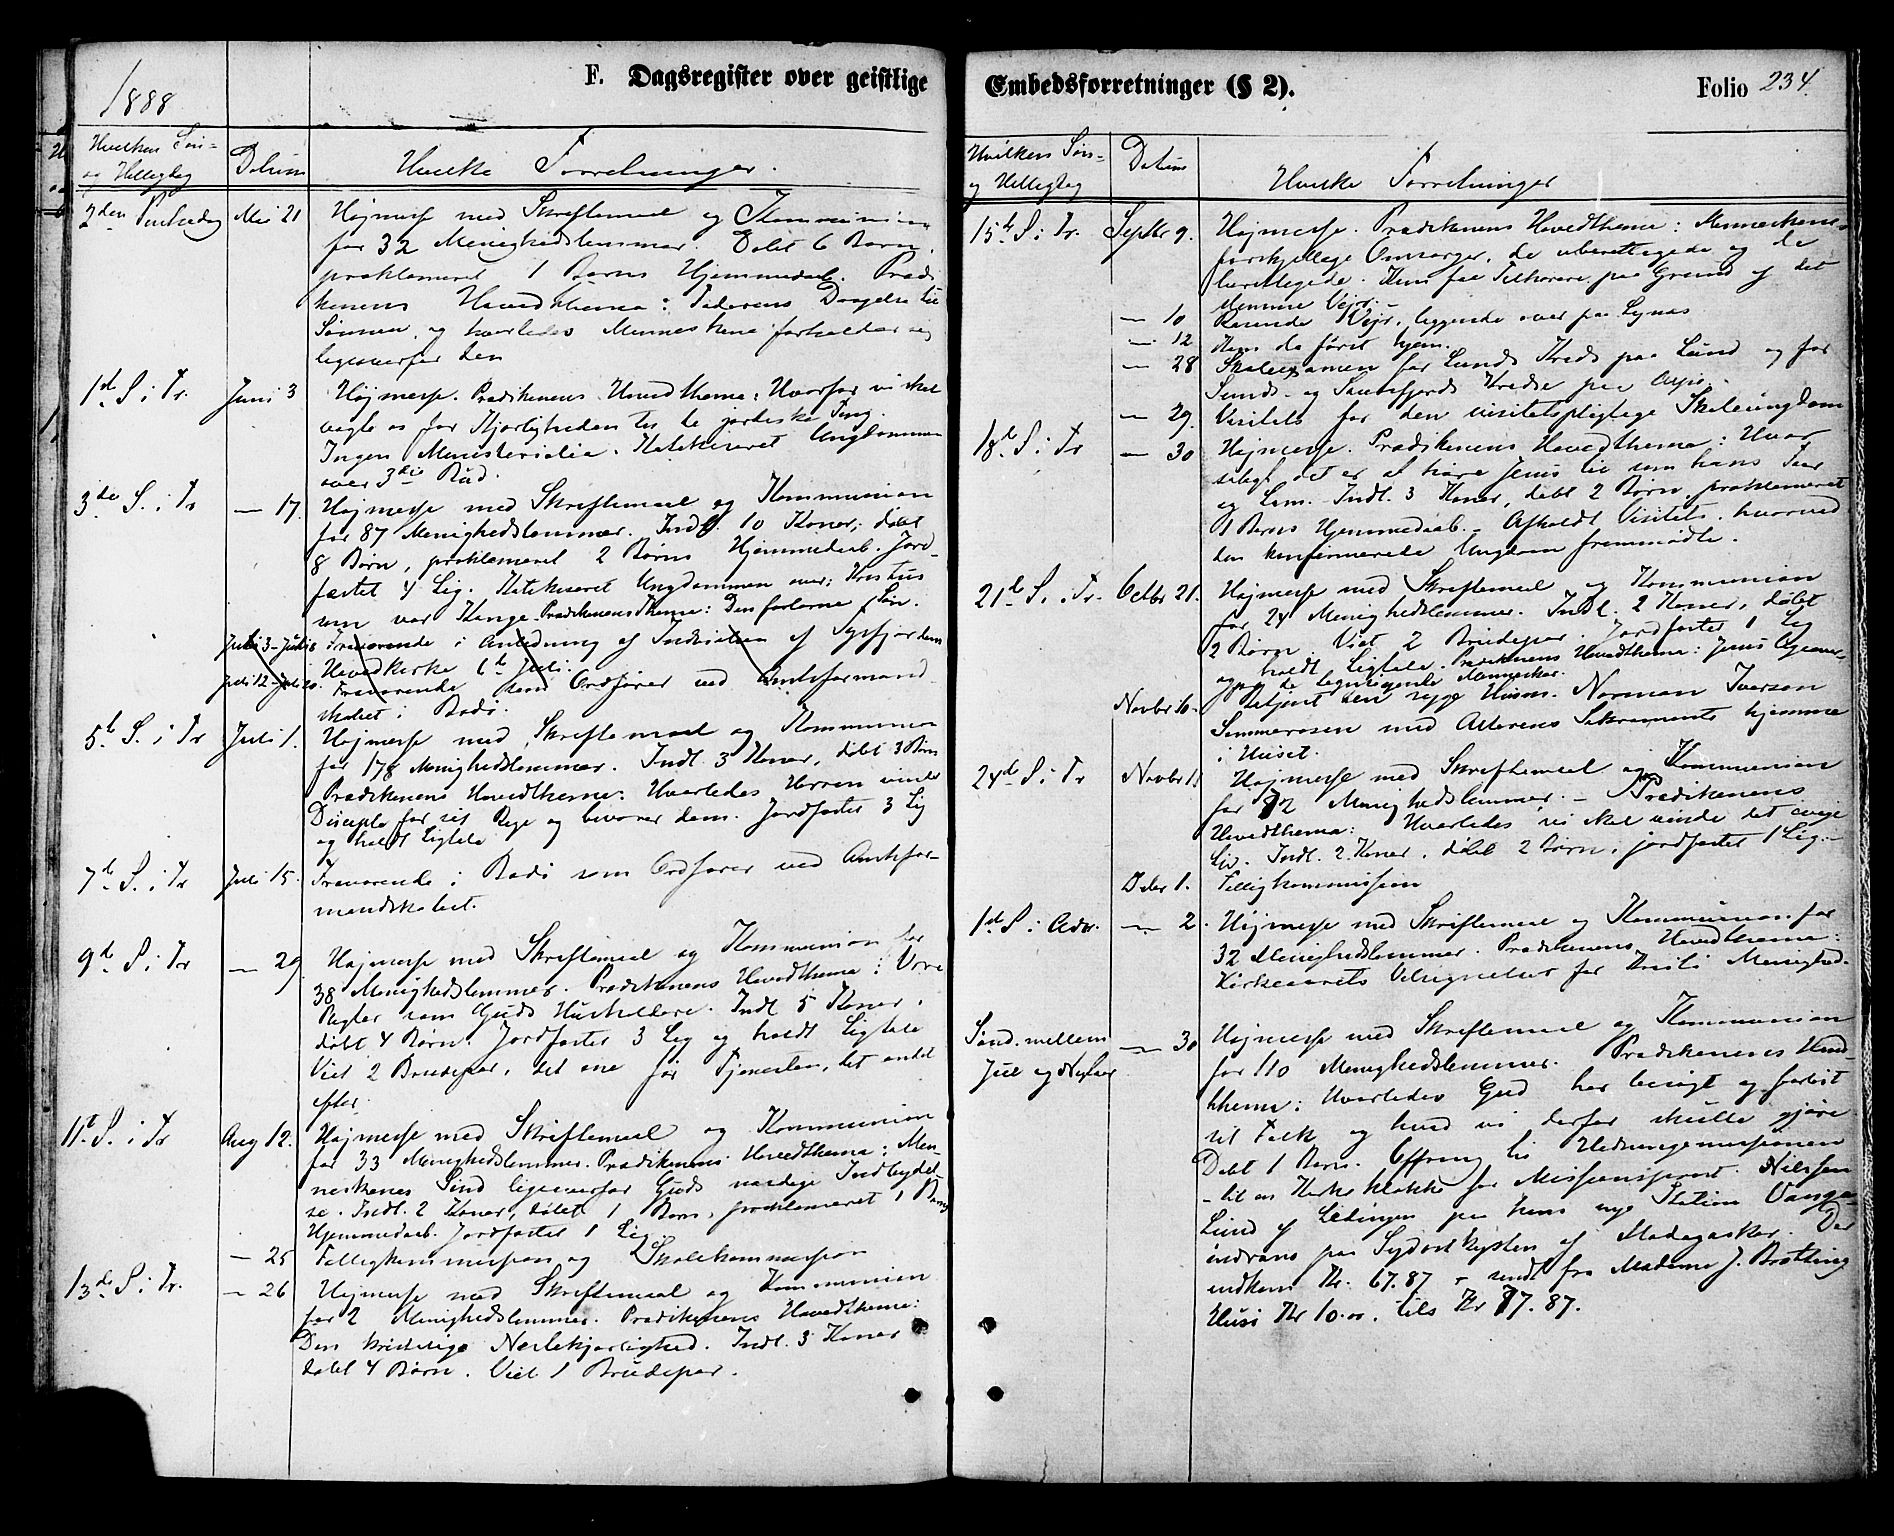 1888
F. Dagsregister over geistlige
Hvilken Søn-
og Helligdag
Datum
Hvilke Forretninger.
2den Pintsedag
Mai 21
Højmesse med Skriftemaal og Kommunion
for 32 Menighedslemmer. Døbt 6 Børn,
proklameret 1 Barns Hjemmedaab. Prædi
kenens Hovedthema: Faderens Dragelse til
Sønnen, og hvorledes Menneskene forholder sig
ligeoverfor den
1ste S. i Tr.
Juni 3
Højmesse. Prædikenens Hovedthema: Hvorfor vi skal
vogte os for Kjærligheden til de jordiske Ting.
Ingen Ministerialia. Katekiseret Ungdommen
over 3die Bud.
3die S. i Tr
— 17.
Højmesse med Skriftemaal og Kommunion
for 87 Menighedslemmer. Indl. 10 Koner, døbt
8 Børn, proklameret 2 Børns Hjemmedaab. Jord-
fæstet 4 Lig. Katekiseret Ungdommen over: Kristus
som vor Konge. Prædikenens Thema: Den fortorne Søn.
Juli 3 - Juli 6
Fraværende i Anledning af Indvielsen af Sygfjordens
Hovedkirke 6te Juli.
Juli 12 - Juli 20.
Fraværende som Ordfører ved Amtsformand-
skabet i Bodø.
5te S. i Tr
Juli 1.
Højmesse med Skriftemaal og Kommunion
for 178 Menighedslemmer. Indl. 3 Koner, døbt 3 Børn
Prædikenens Hovedthema: Hvorledes Herren vinder
Disciple for sit Rige og bevarer dem. Jordfæstet 3 Lig
og holdt Ligtale
7de S. i Tr
Juli 15.
Fraværende i Bodø som Ordfører ved Amtsfor-
mandskabet.
9de S. i Tr
— 29
Højmesse med Skriftemaal og Kommunion for
38 Menighedslemmer. Prædikenens Hovedthema: Vore
Pligter som Guds Husholdere. Indl 5 Koner,
døbt 4 Børn. Jordfæstet 3 Lig og holdt Ligtale
Viet 2 Brudepar, det ene før Tjenesten, det andet
efter.
11te S. i Tr
Aug 12.
Højmesse med Skriftemaal og Kommunion
for 33 Menighedslemmer. Prædikenens Hovedthema: Men-
neskenes Sind ligeoverfor Guds naadige Indbydel-
se. Indl. 2 Koner, døbt 1 Barn, proklameret 1 Barns
Hjemmedaab. Jordfæstet 1 Lig.
— 25
Fattigkommission og Skolekommission
13de S. i Tr.
— 26
Højmesse med Skriftemaal og Kommunion
for 2 Menighedslemmer. Prædikenens Hovedthema:
Den kristelige Næstekjærlighed. Indl. 3 Koner
døbt 4 Børn. Viet 1 Brudepar.
Embedsforretninger (§ 2).
Folio 234.
Hvilken Søn-
og Helligdag
Datum
Hvilke Forretninger
15de S. i Tr.
Septbr 9.
Højmesse. Prædikenens Hovedthema: Menneskenes
forskjellige Omsorger, de uberettigede og de
berettigede. Kun faa Tilhørere paa Grund af det
slemme Vejr.
— 10
Rasende Vejr, liggende over paa Lynæs
— 12
Kom da først hjem.
— 28
Skoleexamen for Lunds Kreds paa Lund og for
Sunds- og Sandsfjords Kredse paa
— 29.
Visitats for den visitatspligtige Skoleungdom
18de S. i Tr
— 30
Højmesse. Prædikenens Hovedthema: Hvor
saligt det er at høre Jesus til som hans Faar
og Lam. Indl. 3 Koner, døbt 2 Børn, proklameret
1 Barns Hjemmedaab. - Afholdt Visitats, hvorved
den konfirmerede Ungdom fremmødte.
21de S. i Tr.
Octbr 21.
Højmesse med Skriftemaal og Kommunion
for 24 Menighedslemmer. Indl. 2 Koner, døbt
2 Børn. Viet 2 Brudepar. Jordfæstet 1 Lig
og holdt Ligtale. Prædikenens Hovedthema: Jesus
og de Menneskene.
Novbr 10.
Betjent den syge Husm. Norman Iversen
Sommerosen med Alterens Sakramente hjemme
i Huset.
24de S. i Tr
Novbr 11
Højmesse med Skriftemaal og Kommunion
for 72 Menighedslemmer. - Prædikenens
Hovedthema: Hvorledes vi skal vinde det evige
Liv. Indl. 2 Koner, døbt 2 Børn, jordfæstet 1 Lig. -
Dcbr 1.
Fattigkommission
1ste S. i Adv.
— 2.
Højmesse med Skriftemaal og Kommunion for
32 Menighedslemmer. Prædikenens Hovedthema:
Kirkeaarets Velsignelser for Kristi Menighed.
Sønd. mellem
Jul og Nytaar
— 30
Højmesse med Skriftemaal og Kommunion
for 110 Menighedslemmer. Prædikenens Hoved-
thema: Hvorledes Gud har besøgt og forløst
sit Folk og hvad vi derfor skulle gjøre
Døbt 1 Barn. Offring til Hedningemissionen
- til en Kirkeklokke for Missionsprest Nilssen
Lund af Lødingen paa hans nye Station Vanga-
indrano paa Sydostkysten af Madagaskar. Der
indkom Kr. 67.87 + sendt fra Madame J. Brætting
Husø Kr 10.00, tils Kr 77.87.